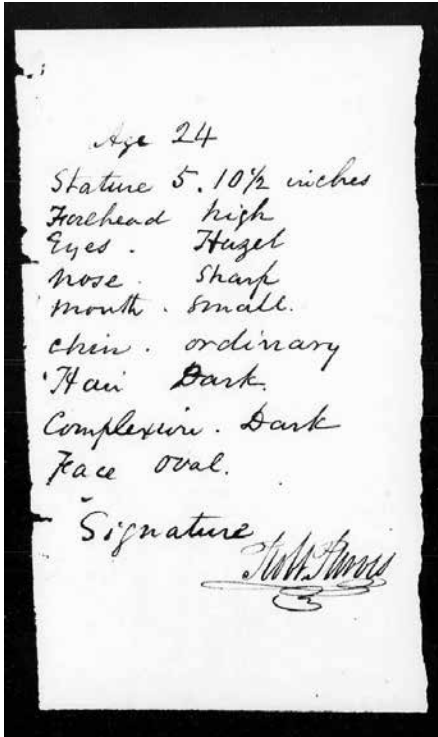 Age 24
Stature 5.10½ inches
Forehead high
Eyes. Hazel
nose. sharp
mouth. small.
chin. ordinary
Hair Dark.
Complexion. Dark
Face oval.
Signature
Robt. Purvis